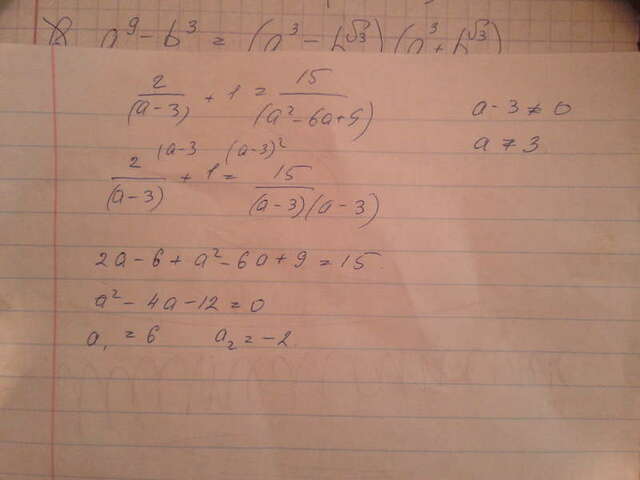 a⁹ - b³ = (a³ - b^√3) (a³ + b^√3)
2/(a-3) + 1 = 15/(a² - 6a + 9)
a - 3 ≠ 0
a ≠ 3
(a-3 (a-3)²
2/(a-3) + 1 = 15/(a-3)(a-3)
2a - 6 + a² - 6a + 9 = 15
a² - 4a - 12 = 0
a₁ = 6 a₂ = -2